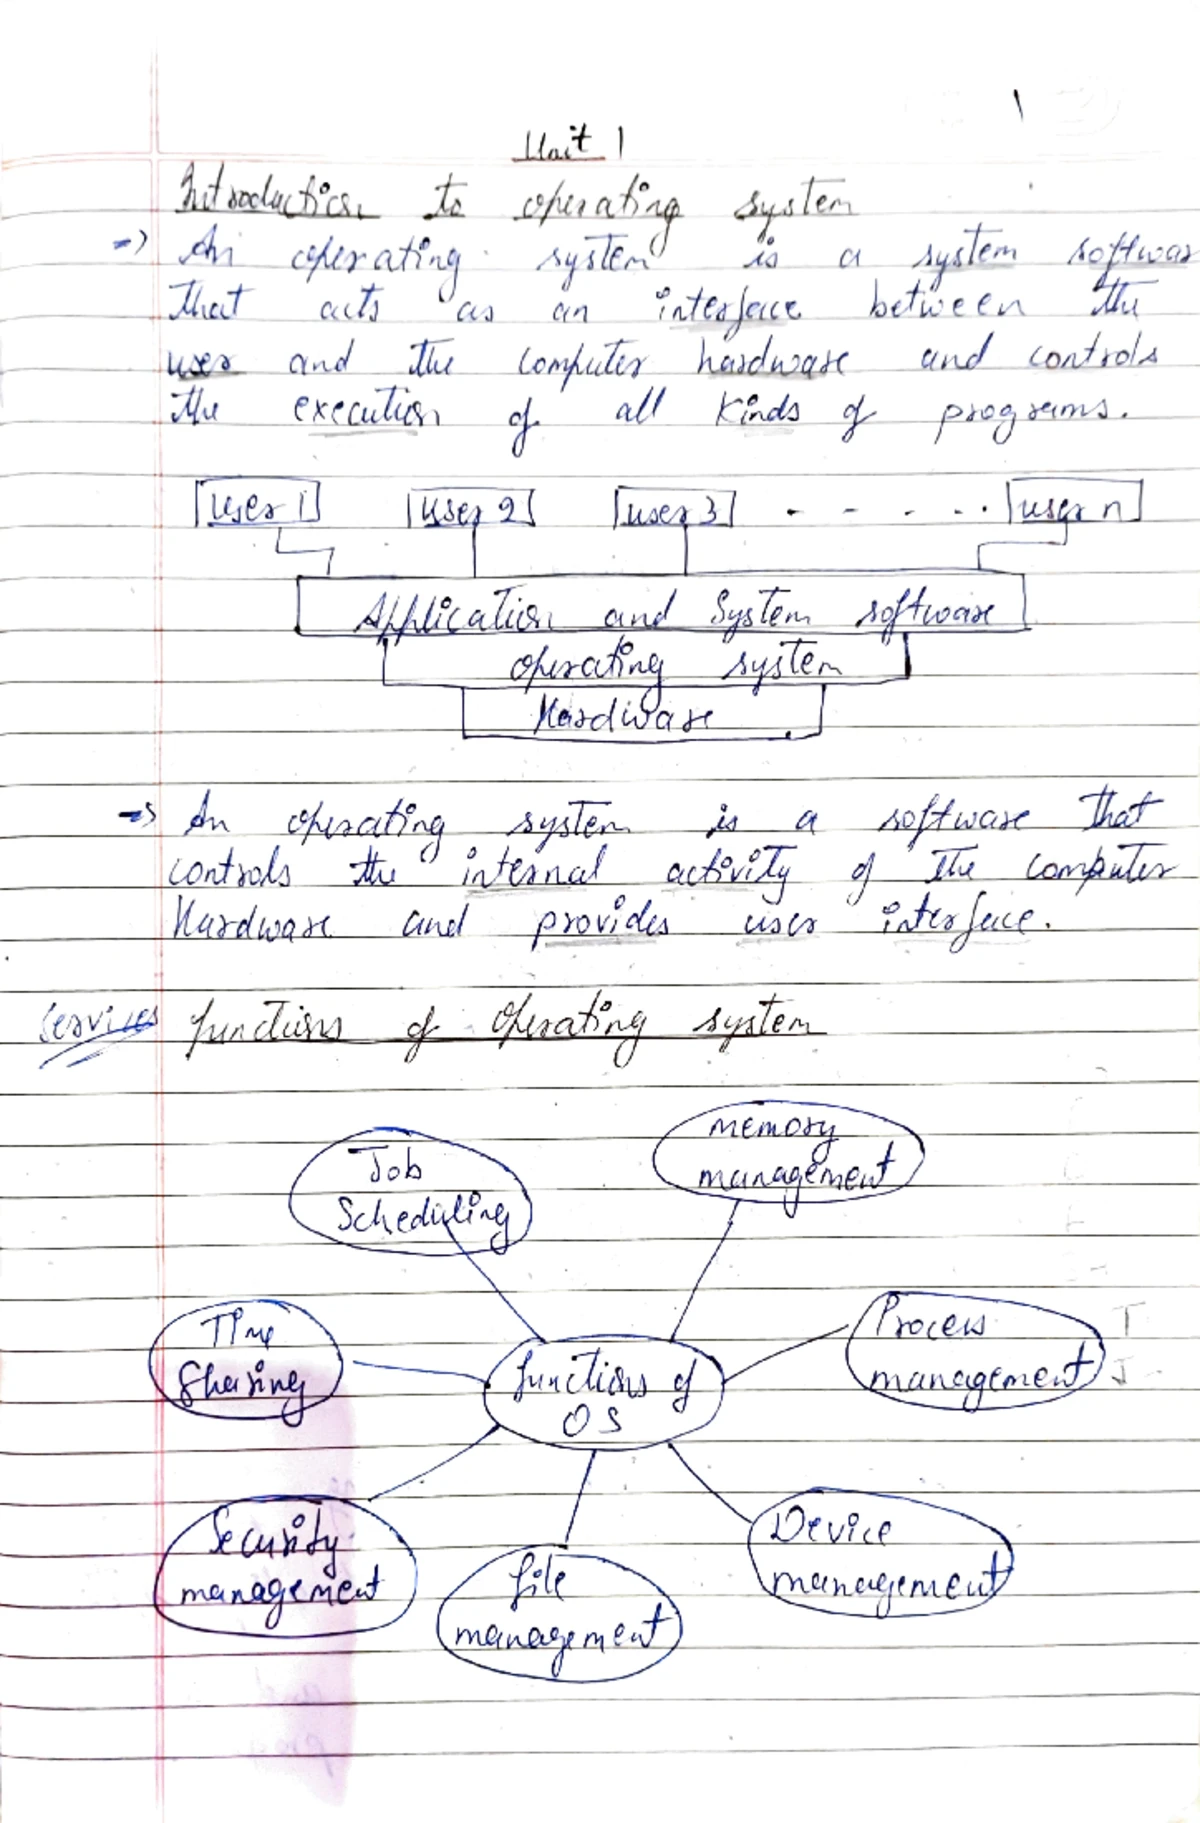 1
Unit 1
Introduction to operating system
=> An operating system is a system softwar
that acts as an interface between the
user and the computer hardware and controls
the execution of all kinds of programs.
user 1 user 2 user 3 - - - - .. user n
Application and System software
operating system
Hardware
=> An operating system is a software that
controls the internal activity of the computer
Hardware and provides user interface.
Services functions of operating system
Job
Scheduling
memory
management
Time
Sharing
Process
management
functions of
OS
Security
management
file
management
Device
management